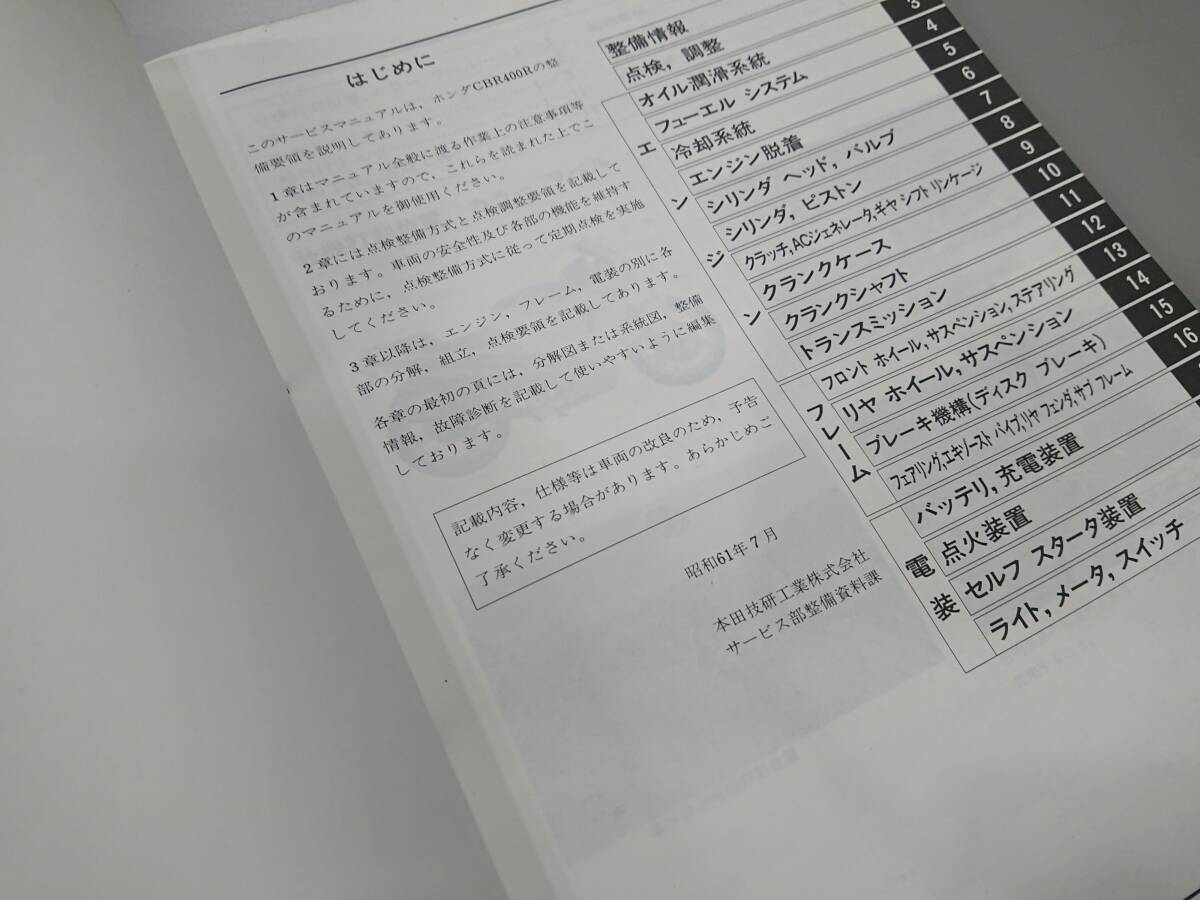 はじめに
このサービスマニュアルは，ホンダCBR400Rの整
備要領を説明してあります。
1章はマニュアル全般に渡る作業上の注意事項等
が含まれていますので，これらを読まれた上でこ
のマニュアルを御使用ください。
2章には点検整備方式と点検調整要領を記載して
おります。車両の安全性及び各部の機能を維持す
るために，点検整備方式に従って定期点検を実施
してください。
3章以降は，エンジン，フレーム，電装の別に各
部の分解，組立，点検要領を記載してあります。
各章の最初の頁には，分解図または系統図，整備
情報，故障診断を記載して使いやすいように編集
しております。
記載内容，仕様等は車両の改良のため，予告
なく変更する場合があります。あらかじめご
了承ください。
昭和61年7月
本田技研工業株式会社
サービス部整備資料課
整備情報
点検，調整
オイル潤滑系統
フューエル システム
冷却系統
エンジン脱着
シリンダ ヘッド，バルブ
シリンダ，ピストン
クラッチ，ACジェネレータ，ギヤ シフト リンケージ
クランクケース
クランクシャフト
トランスミッション
フロント ホイール，サスペンション，ステアリング
リヤ ホイール，サスペンション
ブレーキ機構(ディスク ブレーキ)
フェアリング，エキゾースト パイプ，リヤ フェンダ，サブ フレーム
バッテリ，充電装置
点火装置
セルフ スタータ装置
ライト，メータ，スイッチ
エンジン
フレーム
電装
3
4
5
6
7
8
9
10
11
12
13
14
15
16